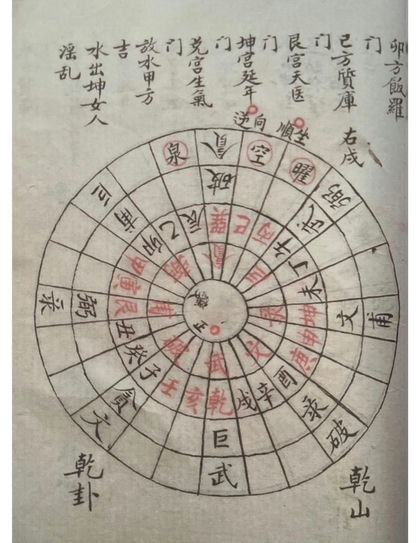 卯方飯羅
门
巳方質庫
门
艮宫天医
门
坤宫延年
门
兑宫生氣
门
放水甲方
吉
水出坤女人
淫乱
右戌
順坐
逆向
泉
貪
空
曜
破
弼
辰
巽
巳
丙
丁
午
未
坤
庚
酉
辛
戌
乾
亥
壬
子
癸
丑
艮
寅
甲
卯
乙
文
甫
录
破
巨
武
貪
文
弼
武
文
乾卦
乾山